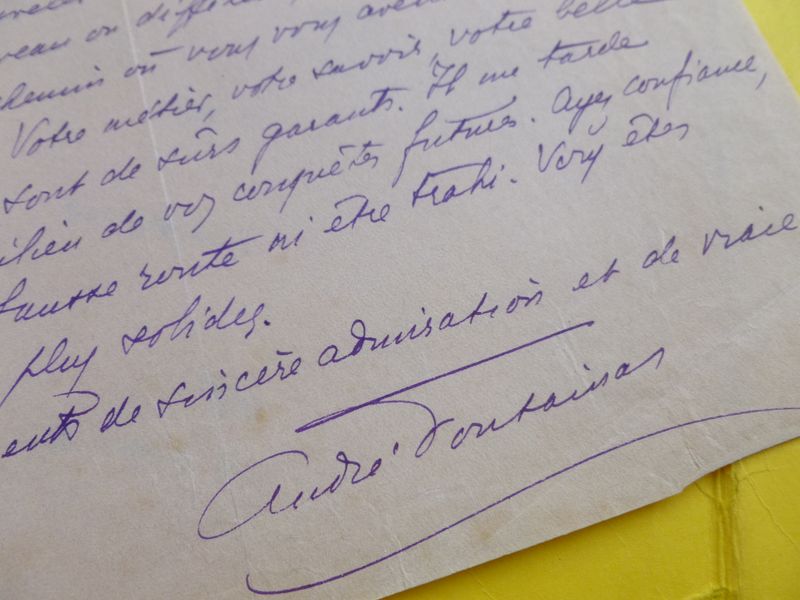 veau ou
chemin où vous vous
Votre métier, votre savoir, votre belle
sont de sûrs garants. Il me tarde
milieu de vos conquêtes futures. Ayez confiance,
fausse route ni être trahi. Vous êtes
plus solides.
ents de sincère admiration et de vraie
André Fontainas